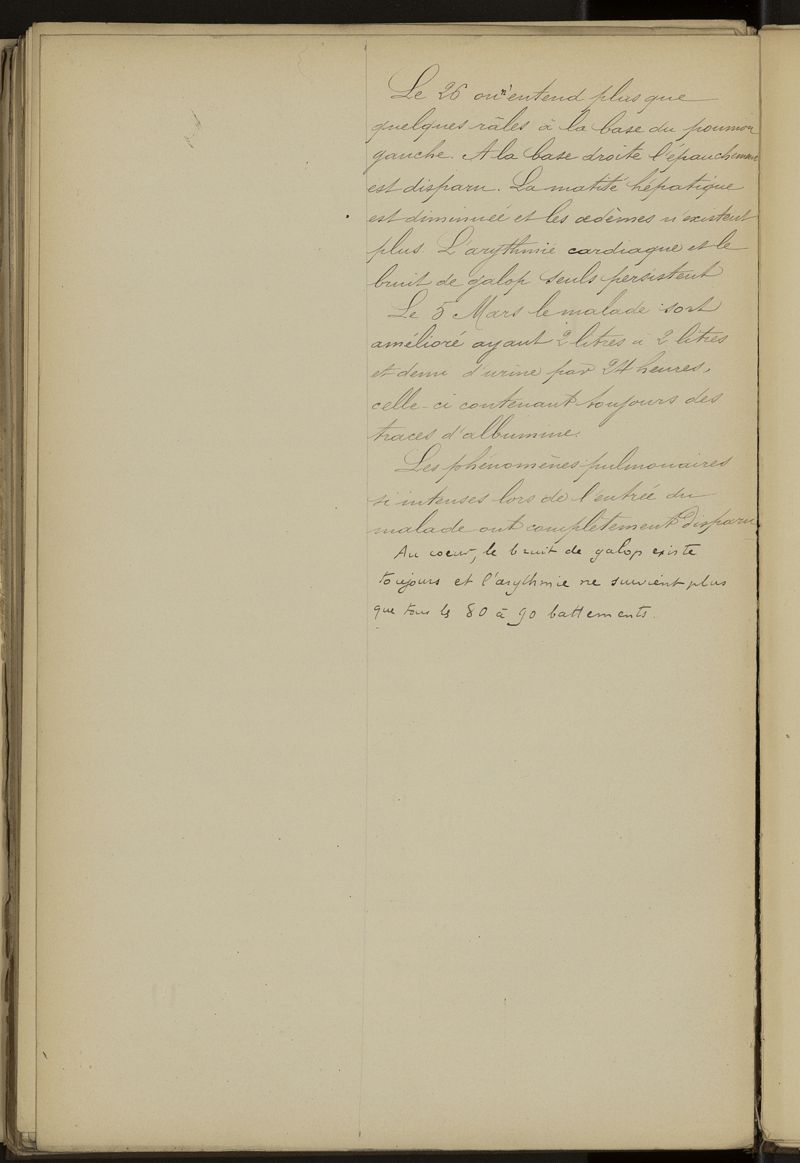 Le 26 on n'entend plus que
quelques râles à la base du poumon
gauche. A la base droite l'épanchement
est disparu. La matité hépatique
est diminuée et les œdèmes n'existent
plus. L'arythmie cardiaque et le
bruit de galop seuls persistent
Le 5 Mars le malade sort
amélioré ayant 2 litres à 2 litres
et demi d'urine par 24 heures,
celle-ci contenant toujours des
traces d'albumine.
Les phénomènes pulmonaires
si intenses lors de l'entrée du
malade ont complètement disparu
Au coeur, le bruit de galop existe
toujours et l'arythmie ne survient plus
que tous les 80 à 90 battements.